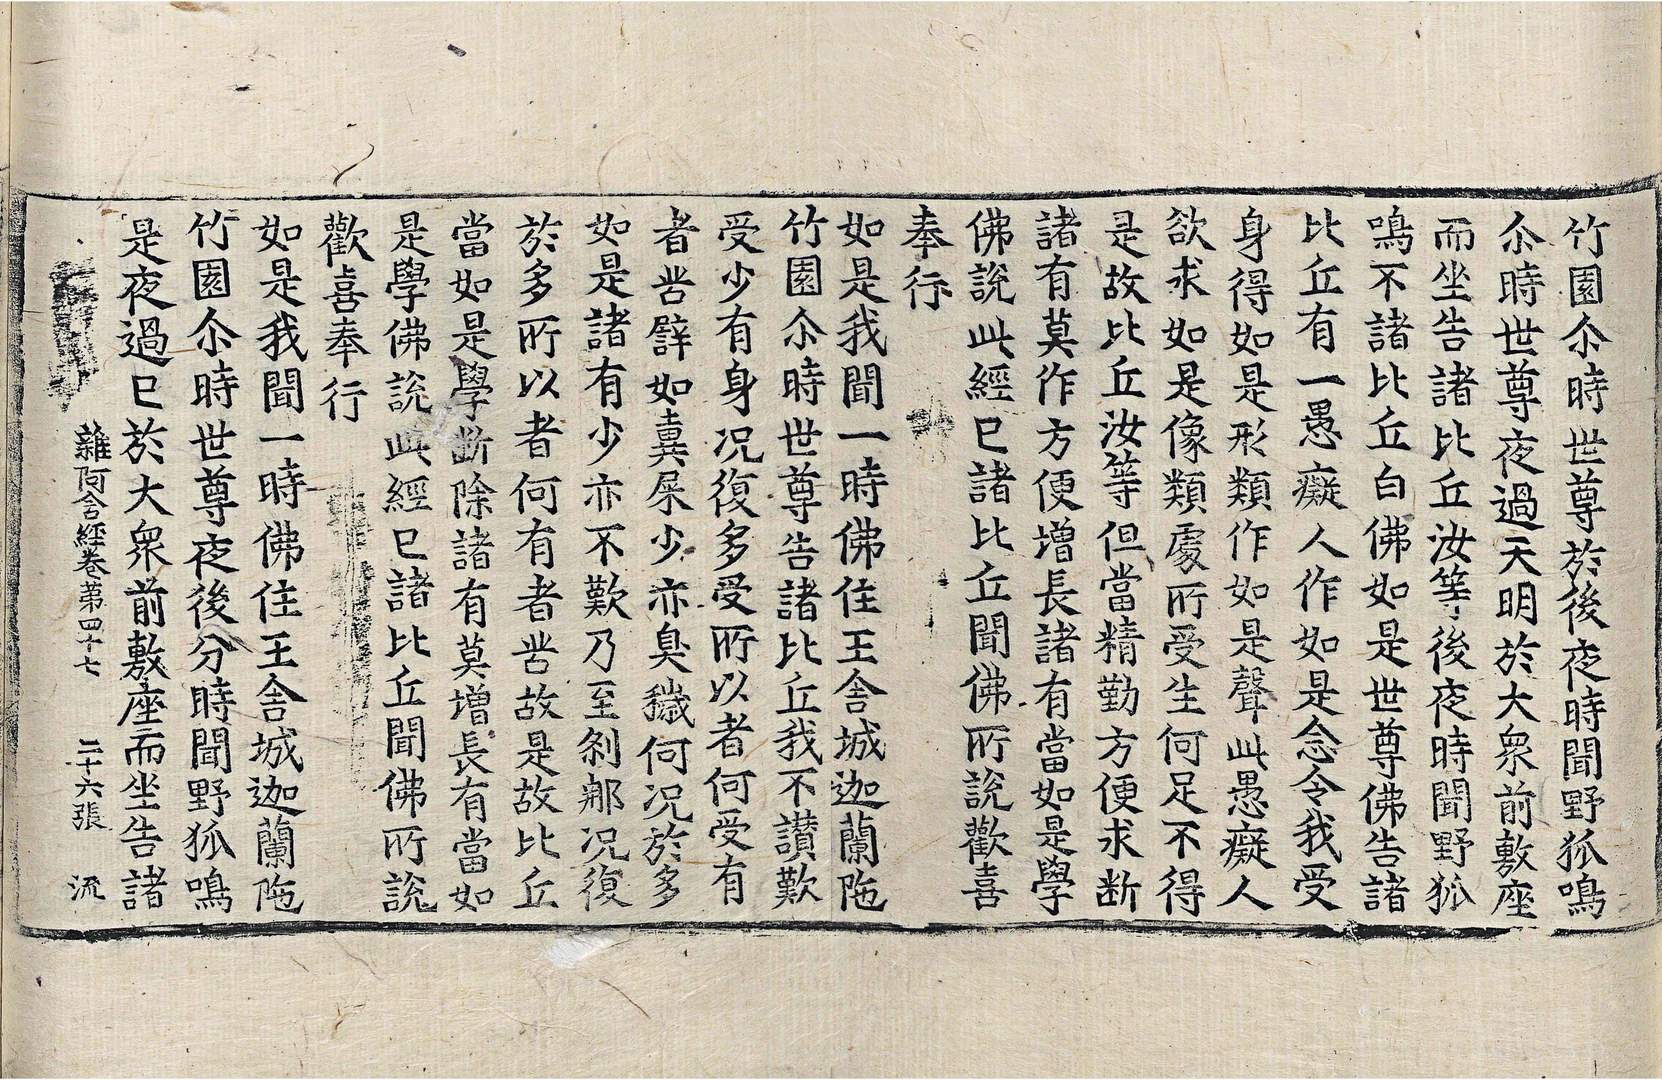 竹園尒時世尊於後夜時聞野狐鳴
尒時世尊夜過天明於大衆前敷座
而坐告諸比丘汝等後夜時聞野狐
鳴不諸比丘白佛如是世尊佛告諸
比丘有一愚癡人作如是念令我受
身得如是形類作如是聲此愚癡人
欲求如是像類處所受生何足不得
是故比丘汝等但當精勤方便求断
諸有莫作方便增長諸有當如是學
佛說此經已諸比丘聞佛所說歡喜
奉行
如是我聞一時佛住王舍城迦蘭陁
竹園尒時世尊告諸比丘我不讃歎
受少有身况復多受所以者何受有
者苦譬如糞屎少亦臭穢何况於多
如是諸有少亦不歎乃至刹那况復
於多所以者何有者苦故是故比丘
當如是學断除諸有莫增長有當如
是學佛說此經已諸比丘聞佛所說
歡喜奉行
如是我聞一時佛住王舍城迦蘭陁
竹園尒時世尊夜後分時聞野狐鳴
是夜過已於大衆前敷座而坐告諸
雜阿含經卷第四十七 二十六張 流